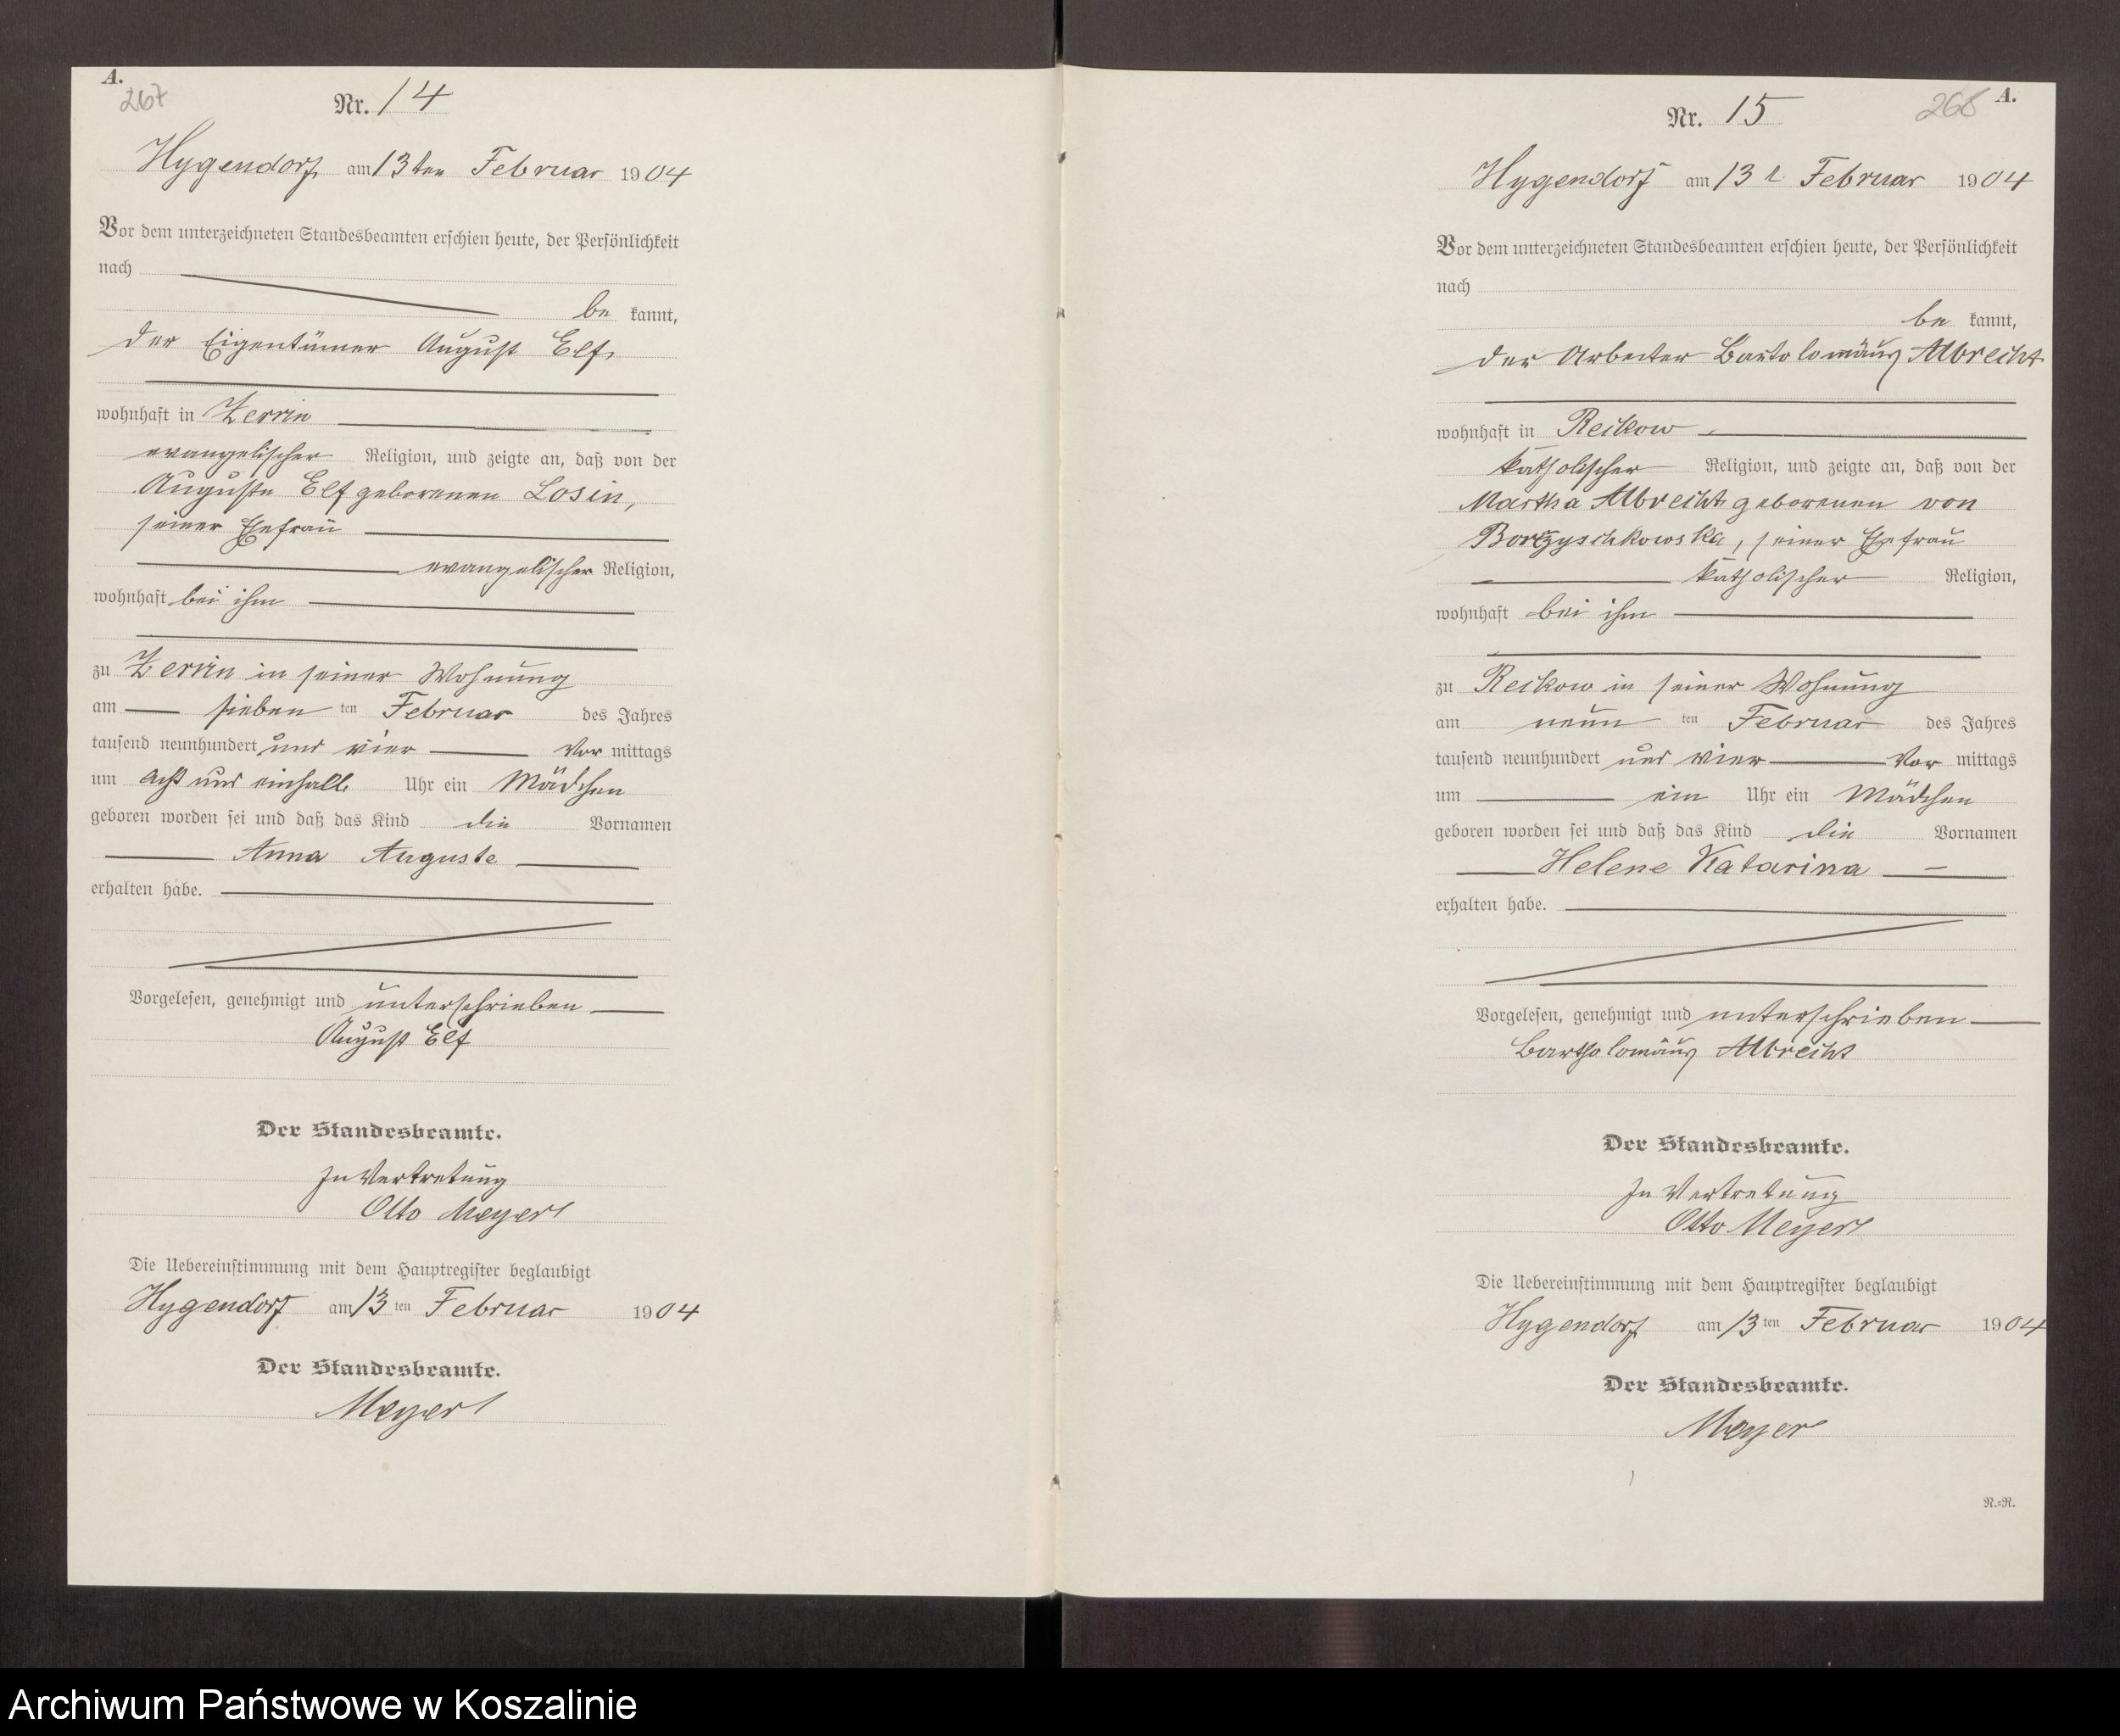 A.
267
Nr. 14
Hygendorf, am 13ten Februar 1904
Vor dem unterzeichneten Standesbeamten erschien heute, der Persönlichkeit
nach
be kannt,
der Eigentümer August Elf,
wohnhaft in Zerrin
evangelischer Religion, und zeigte an, daß von der
Auguste Elf geborenen Losin,
seiner Ehefrau
evangelischer Religion,
wohnhaft bei ihm
zu Zerrin in seiner Wohnung
am sieben ten Februar des Jahres
tausend neunhundert und vier Vor mittags
um acht und einhalb Uhr ein Mädchen
geboren worden sei und daß das Kind die Vornamen
Anna Auguste
erhalten habe.
Vorgelesen, genehmigt und unterschrieben
August Elf
Der Standesbeamte.
In Vertretung
Otto Meyer
Die Uebereinstimmung mit dem Hauptregister beglaubigt
Hygendorf am 13 ten Februar 1904
Der Standesbeamte.
Meyer
268 A.
Nr. 15
Hygendorf am 13 t. Februar 1904
Vor dem unterzeichneten Standesbeamten erschien heute, der Persönlichkeit
nach
be kannt,
der Arbeiter Bartolomäus Albrecht
wohnhaft in Reckow
katholischer Religion, und zeigte an, daß von der
Martha Albrecht geborenen von
Borzyschkowska, seiner Ehefrau
katholischer Religion,
wohnhaft bei ihm
zu Reckow in seiner Wohnung
am neun ten Februar des Jahres
tausend neunhundert und vier Vor mittags
um ein Uhr ein Mädchen
geboren worden sei und daß das Kind die Vornamen
Helene Katarina
erhalten habe.
Vorgelesen, genehmigt und unterschrieben
Bartholomäus Albrecht
Der Standesbeamte.
In Vertretung
Otto Meyer
Die Uebereinstimmung mit dem Hauptregister beglaubigt
Hygendorf am 13 ten Februar 1904
Der Standesbeamte.
Meyer
N.=R.
Archiwum Państwowe w Koszalinie